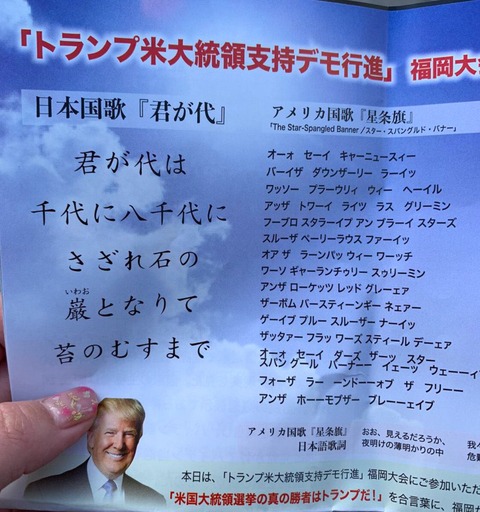 「トランプ米大統領支持デモ行進」 福岡大会
日本国歌『君が代』
君が代は
千代に八千代に
さざれ石の
いわお
巌となりて
苔のむすまで
アメリカ国歌『星条旗』
「The Star-Spangled Banner /スター・スパングルド・バナー」
オーォ セーイ キャーニュースィー
バーイザ ダウンザーリー ラーイッ
ワッソー プラーウリィ ウィー ヘーイル
アッザ トワーイ ライツ ラス グリーミン
フーブロ スタライプ アン ブラーイ スターズ
スルーザ ペーリーラウス ファーイッ
オア ザ ラーンパッ ウィー ワーッチ
ワーソ ギャーランチゥリー スゥリーミン
アンザ ローケッツ レッド グレーェア
ザーボム バースティーンギー ネェアー
ゲーイブ プルー スルーザー ナーイッ
ザッタァー フラッ ワーズ スティール デーェア
オーォ セーイ ダーズ ザーツ スター
スパン グール バーナー イェーツ ウェーーィ
フォーザ ラー ーンドーーオブ ザ フリーー
アンザ ホーーモブザー ブレーーェイブ
アメリカ国歌『星条旗』
日本語歌詞
おお、見えるだろうか、
夜明けの薄明かりの中
我々
危
本日は、「トランプ米大統領支持デモ行進」福岡大会にご参加いただ
「米国大統領選挙の真の勝者はトランプだ!」を合言葉に、福岡か